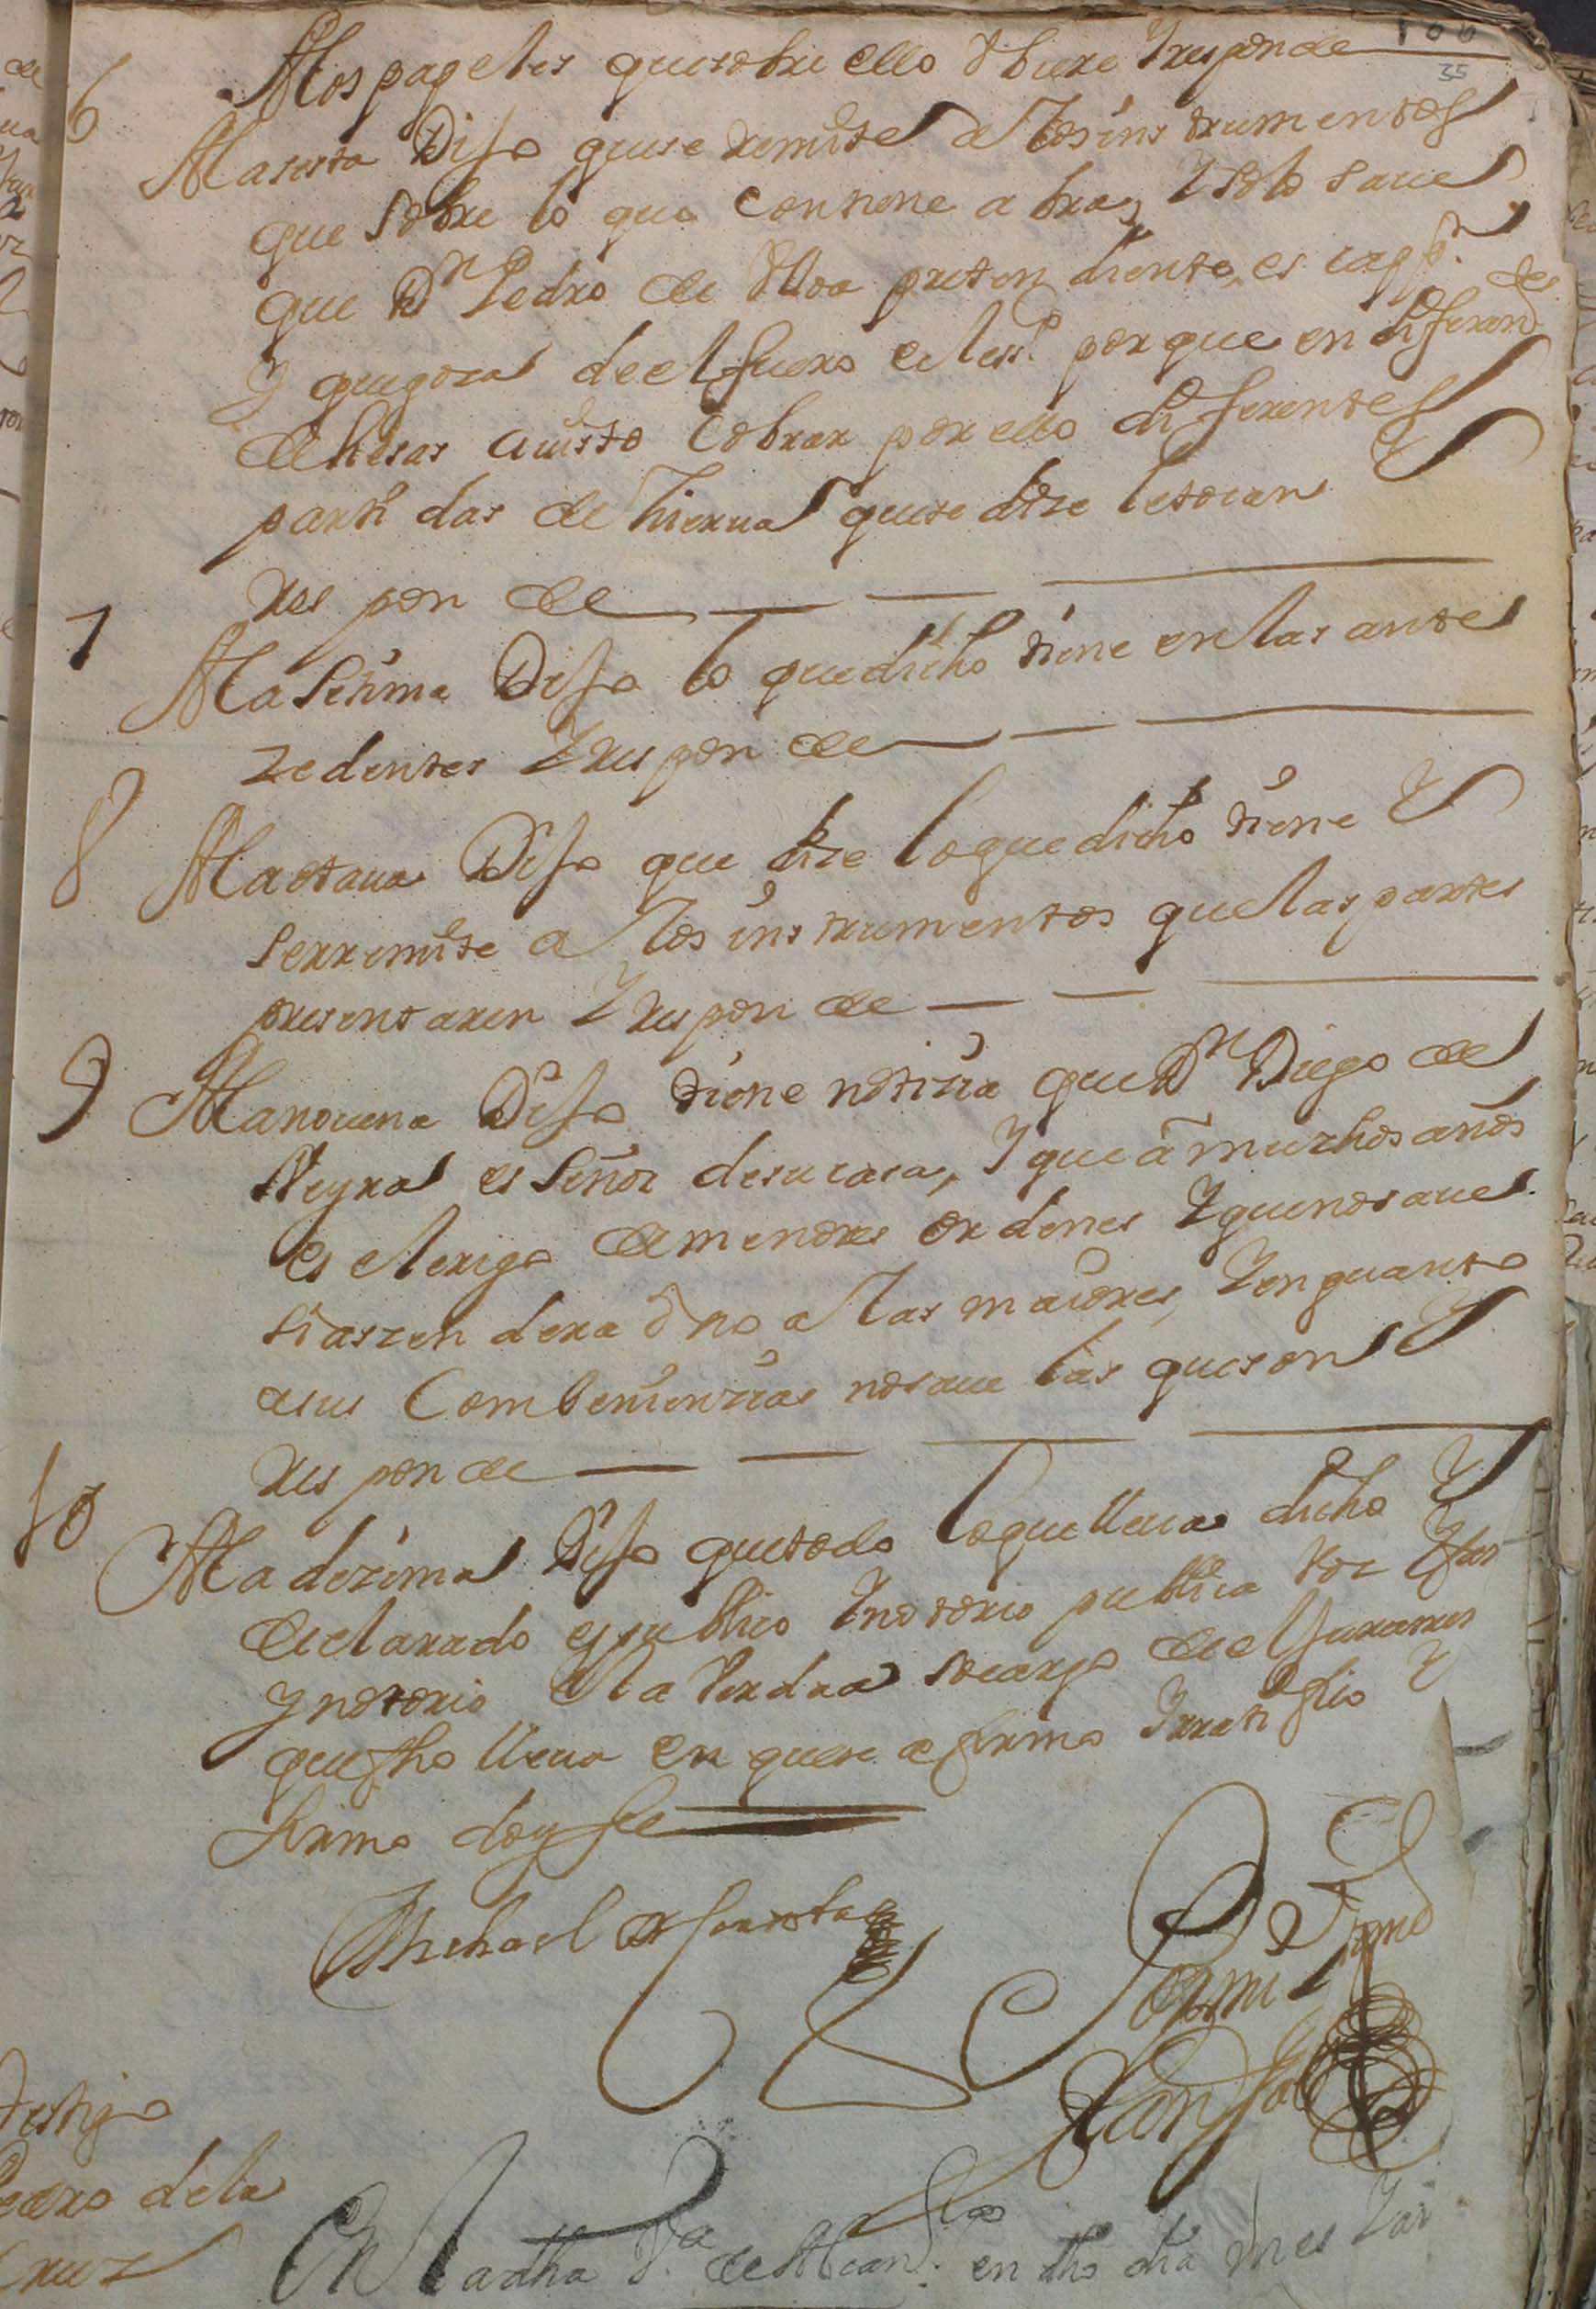 100
35
Alos papeles que sobre ello Vbiere Y responde
6
Alasesta Dijo que se remite a los instrumentos
que sobre lo que contiene abra, Y solo saue
que Dn Pedro de Vlloa pretendiente, es capp.n
Y que goza de el fuero ecless.o porque en diferentes
dehesas a uisto Cobrar por ello diferentes
partidas de hierua que se dize le tocan Y
responde
7
Alasetima Dijo lo que dicho tiene en las ante
zedentes Y responde
8
Alaoctaua Dijo que dize lo que dicho tiene Y
serremite a los instrumentos que las partes
presentaren Y responde
9
Alanouena Dijo tiene notizia que Dn Diego de
Neyra es señor de su casa, Y que a muchos años
es clerigo de menores ordenes Y que no saue
si aszendera o no a las maiores, Y en quanto
a sus Combenienzias no saue las que son Y
responde
10
Aladezima Dijo que todo lo que lleua dicho Y
declarado es publico Y notorio publica voz Y fama
Y notorio Y la Verdad so cargo de el Juramento
que fho lleua en que se afirmo Y rratifico Y
firmo doy fe
Testigo
Pedro de la
Cruz
En la dha V.a de en dho dia mes Y año